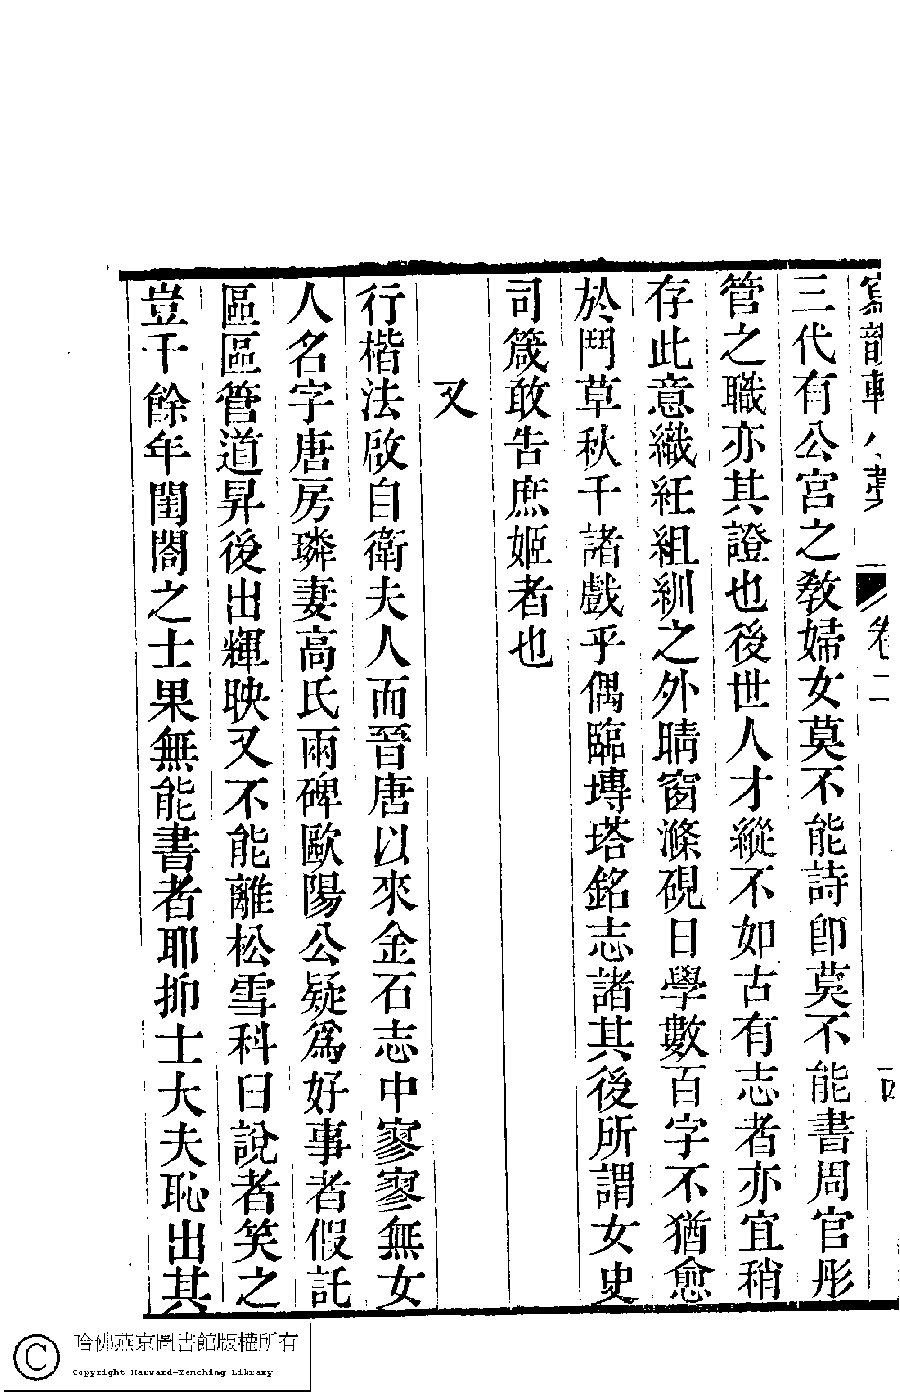 寫韻軒小藁 卷二 四
三代有公宮之敎婦女莫不能詩卽莫不能書周官彤
管之職亦其證也後世人才縱不如古有志者亦宜稍
存此意織紝組紃之外晴窗滌硯日學數百字不猶愈
於鬥草秋千諸戲乎偶臨塼塔銘志諸其後所謂女史
司箴敢告庶姬者也
又
行楷法啟自衛夫人而晉唐以來金石志中寥寥無女
人名字唐房璘妻高氏兩碑歐陽公疑爲好事者假託
區區管道昇後出輝映又不能離松雪科臼說者笑之
豈千餘年閨閤之士果無能書者耶抑士大夫恥出其
哈佛燕京圖書館版權所有
Copyright Harvard-Yenching Library